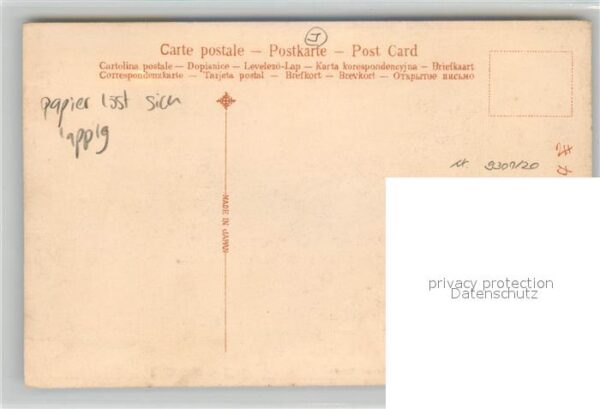 J
Carte postale — Postkarte — Post Card
Cartolina postale — Dopisnice — Levelező-Lap — Karta korespondencyjna — Briefkaart
Correspondenzkarte — Tarjeta postal — Brefkort — Brevkort — Открытое письмо
papier löst sich
lappig
9301/20
MADE IN JAPAN
privacy protection
Datenschutz